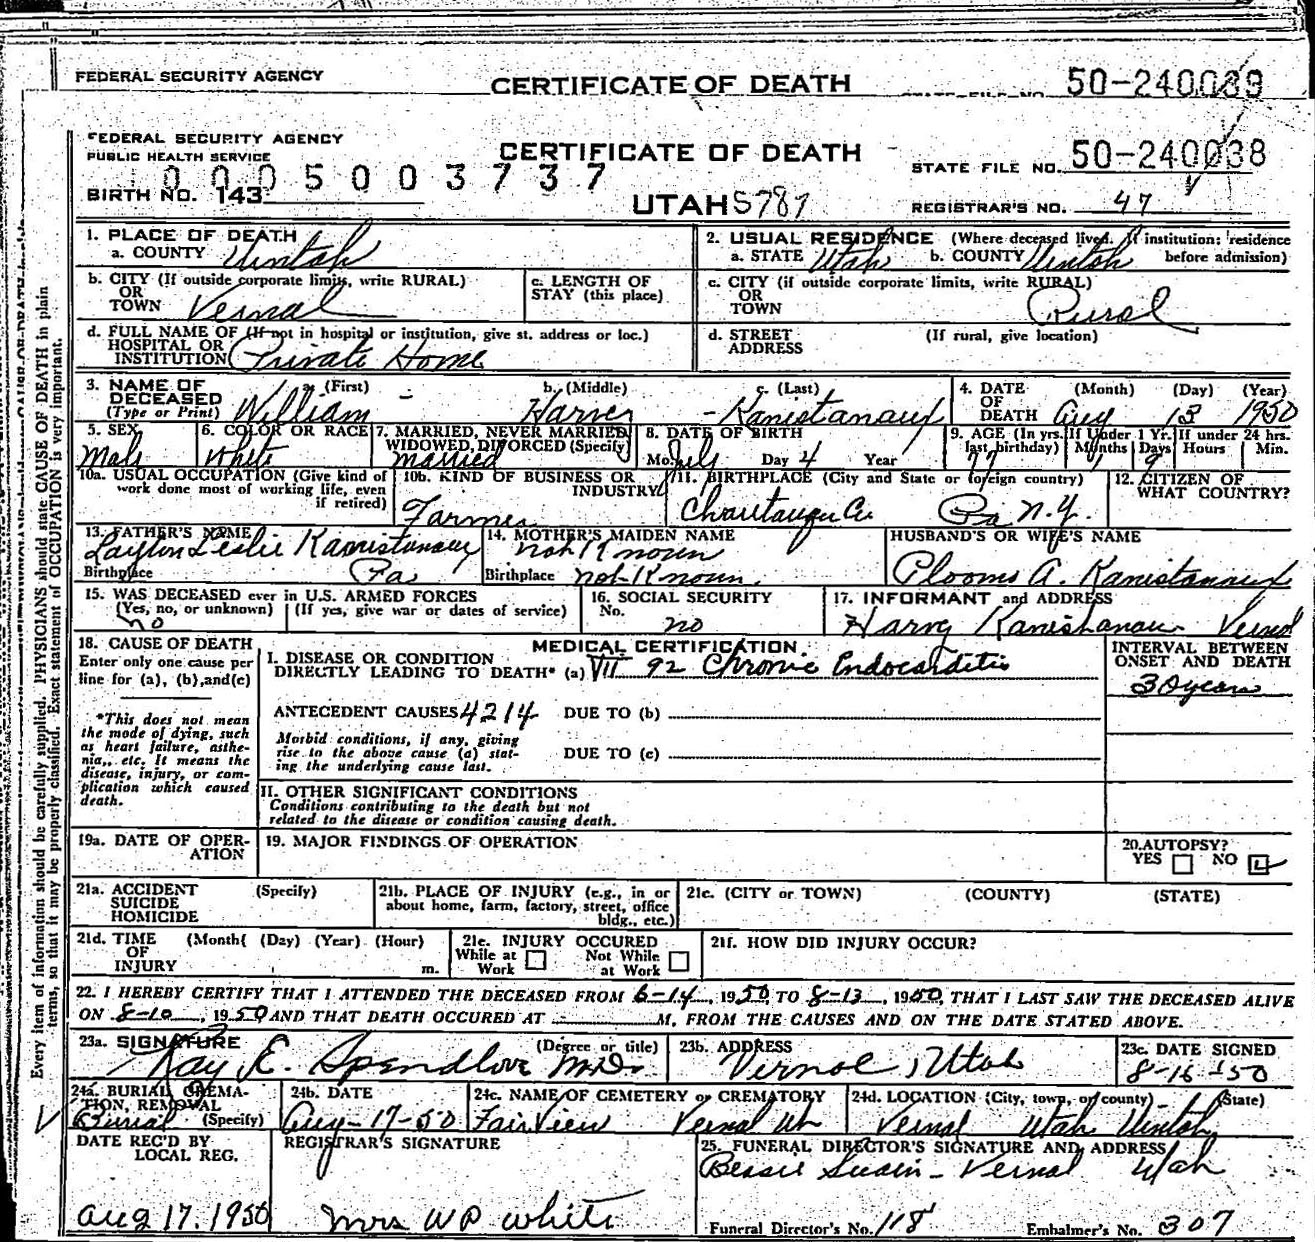 FEDERAL SECURITY AGENCY CERTIFICATE OF DEATH 50-240039
FEDERAL SECURITY AGENCY
PUBLIC HEALTH SERVICE CERTIFICATE OF DEATH STATE FILE NO. 50-240038
0005003737
BIRTH NO. 143 UTAH 5787 REGISTRAR'S NO. 47
1. PLACE OF DEATH 2. USUAL RESIDENCE (Where deceased lived. If institution: residence
a. COUNTY Uintah a. STATE Utah b. COUNTY Uintah before admission)
b. CITY (If outside corporate limits, write RURAL) c. LENGTH OF c. CITY (if outside corporate limits, write RURAL)
OR STAY (this place) OR
TOWN Vernal TOWN Rural
d. FULL NAME OF (If not in hospital or institution, give st. address or loc.) d. STREET (If rural, give location)
HOSPITAL OR ADDRESS
INSTITUTION Private Home
3. NAME OF a. (First) b. (Middle) c. (Last) 4. DATE (Month) (Day) (Year)
DECEASED OF
(Type or Print) William Harvey Kanistanaux DEATH Aug 13 1950
5. SEX 6. COLOR OR RACE 7. MARRIED, NEVER MARRIED, 8. DATE OF BIRTH 9. AGE (In yrs. If Under 1 Yr. If under 24 hrs.
WIDOWED, DIVORCED (Specify) last birthday) Months Days Hours Min.
Male White married Mo. July Day 4 Year 77 1 9
10a. USUAL OCCUPATION (Give kind of 10b. KIND OF BUSINESS OR 11. BIRTHPLACE (City and State or foreign country) 12. CITIZEN OF
work done most of working life, even INDUSTRY WHAT COUNTRY?
if retired) Farmer Chautauqua Co. Pa N.Y.
13. FATHER'S NAME 14. MOTHER'S MAIDEN NAME HUSBAND'S OR WIFE'S NAME
Layton Leslie Kanistanaux notKnoun
Birthplace Pa Birthplace not Knoun. Plooma A. Kanistanaux
15. WAS DECEASED ever in U.S. ARMED FORCES 16. SOCIAL SECURITY 17. INFORMANT and ADDRESS
(Yes, no, or unknown) (If yes, give war or dates of service) No.
no no Harvy Kanistanau Vernal
18. CAUSE OF DEATH MEDICAL CERTIFICATION INTERVAL BETWEEN
Enter only one cause per I. DISEASE OR CONDITION ONSET AND DEATH
line for (a), (b), and (c) DIRECTLY LEADING TO DEATH* (a) VII 92 Chronic Endocarditis 30 years
*This does not mean ANTECEDENT CAUSES 4214 DUE TO (b)
the mode of dying, such Morbid conditions, if any, giving
as heart failure, asthe- rise to the above cause (a) stat- DUE TO (c)
nia, etc. It means the ing the underlying cause last.
disease, injury, or com-
plication which caused II. OTHER SIGNIFICANT CONDITIONS
death. Conditions contributing to the death but not
related to the disease or condition causing death.
19a. DATE OF OPER- 19. MAJOR FINDINGS OF OPERATION 20. AUTOPSY?
ATION YES NO
21a. ACCIDENT (Specify) 21b. PLACE OF INJURY (e.g., in or 21c. (CITY or TOWN) (COUNTY) (STATE)
SUICIDE about home, farm, factory, street, office
HOMICIDE bldg., etc.)
21d. TIME (Month( (Day) (Year) (Hour) 21e. INJURY OCCURED 21f. HOW DID INJURY OCCUR?
OF While at Not While
INJURY m. Work at Work
22. I HEREBY CERTIFY THAT I ATTENDED THE DECEASED FROM 6-14, 1950 TO 8-13, 1950, THAT I LAST SAW THE DECEASED ALIVE
ON 8-10, 1950 AND THAT DEATH OCCURED AT M, FROM THE CAUSES AND ON THE DATE STATED ABOVE.
23a. SIGNATURE (Degree or title) 23b. ADDRESS 23c. DATE SIGNED
Ray E. Spendlove M.D. Vernal, Utah 8-16-50
24a. BURIAL CREMA- 24b. DATE 24c. NAME OF CEMETERY or CREMATORY 24d. LOCATION (City, town, or county) (State)
TION, REMOVAL
Burial (Specify) Aug-17-50 Fairview Vernal Ut Vernal Utah Uintah
DATE REC'D BY REGISTRAR'S SIGNATURE 25. FUNERAL DIRECTOR'S SIGNATURE AND ADDRESS
LOCAL REG. Bessie Swain - Vernal Utah
Aug 17. 1950 Mrs W P White Funeral Director's No. 118 Embalmer's No. 307
Every item of information should be carefully supplied. PHYSICIANS should state CAUSE OF DEATH in plain
terms, so that it may be properly classified. Exact statement of OCCUPATION is very important.